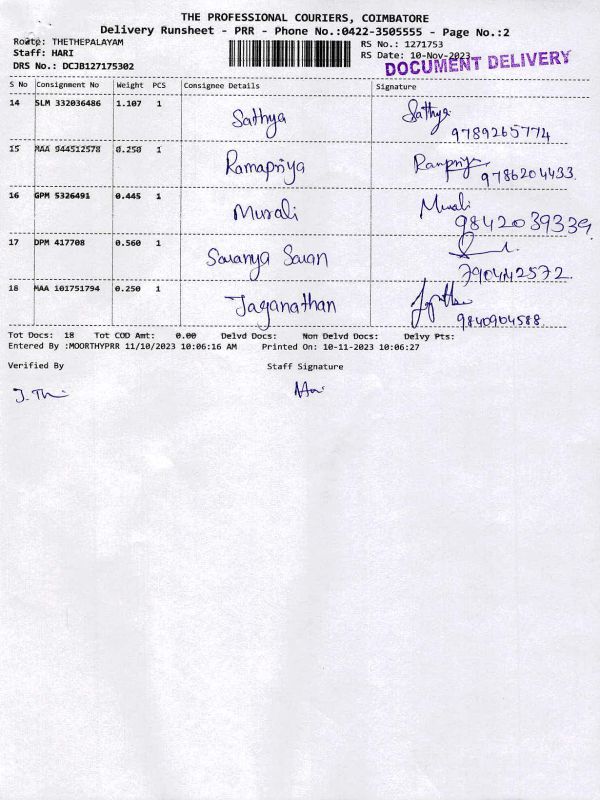 THE PROFESSIONAL COURIERS, COIMBATORE
Delivery Runsheet - PRR - Phone No.:0422-3505555 - Page No.:2
Route: THETHEPALAYAM
RS No.: 1271753
Staff: HARI
RS Date: 10-Nov-2023
DRS No.: DCJB127175302
DOCUMENT DELIVERY
S No Consignment No Weight PCS Consignee Details Signature
14 SLM 332036486 1.107 1 Sathya Sathya
9789265774
15 MAA 944512578 0.250 1 Ramapriya Rampriya
9786204433
16 GPM 5326491 0.445 1 Murali Murali
9842039339
17 DPM 417708 0.560 1 Saranya Saran
7904442572
18 MAA 101751794 0.250 1 Jaganathan
9840904588
Tot Docs: 18 Tot COD Amt: 0.00 Delvd Docs: Non Delvd Docs: Delvy Pts:
Entered By :MOORTHYPRR 11/10/2023 10:06:16 AM Printed On: 10-11-2023 10:06:27
Verified By Staff Signature